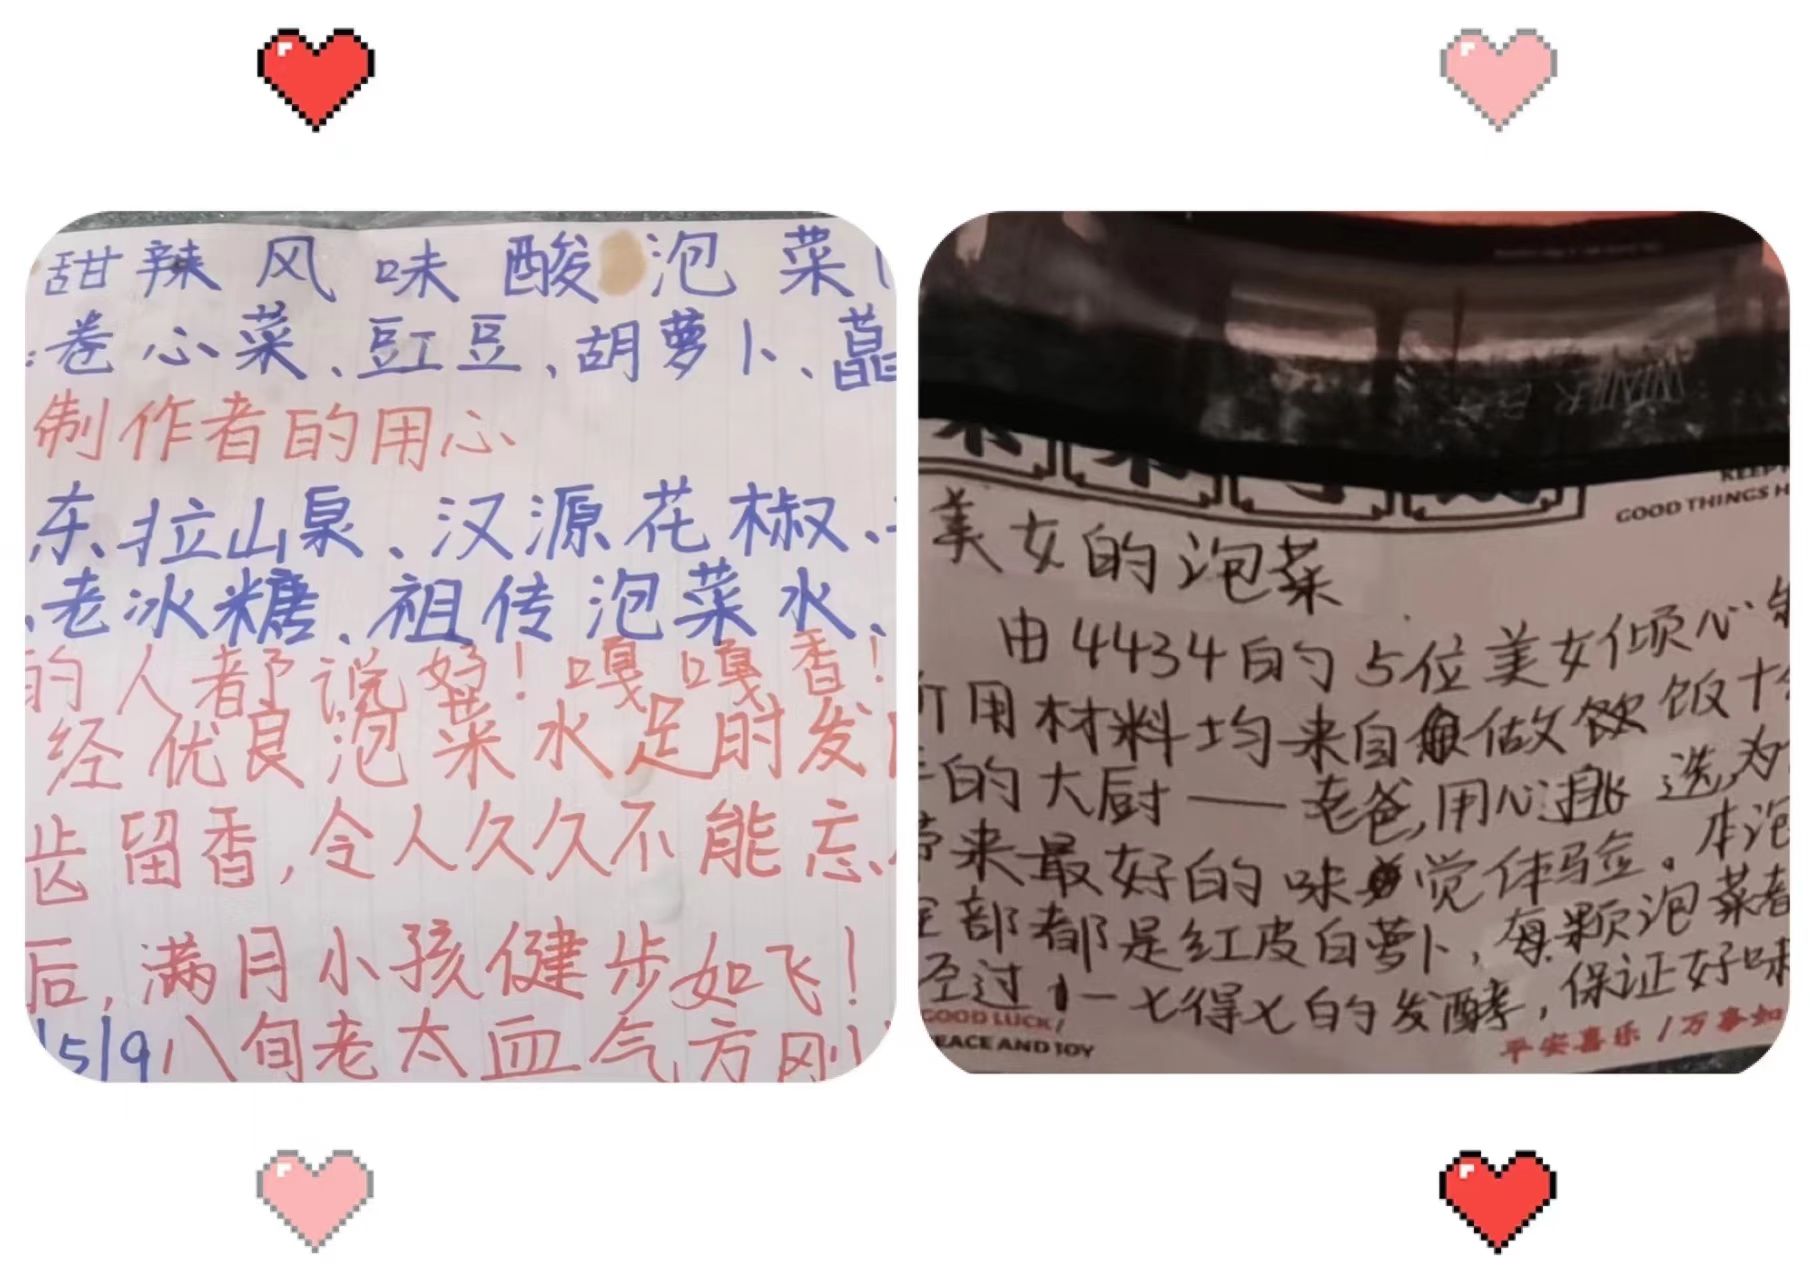 甜辣风味酸泡菜
:卷心菜、豇豆、胡萝卜、藠
制作者的用心
东拉山泉、汉源花椒、
、老冰糖、祖传泡菜水、
的人都说好！嘎嘎香！
经优良泡菜水足时发
齿留香，令人久久不能忘
后，满月小孩健步如飞！
/5/9八旬老太血气方刚！
GOOD THINGS H
美女的泡菜
由4434的5位美女倾心
所用材料均来自做饮饭十
的大厨——老爸，用心挑选，为
带来最好的味觉体验。本泡
全部都是红皮白萝卜，每颗泡菜都
经过1一七得七的发酵，保证好味
GOOD LUCK/
PEACE AND JOY
平安喜乐/万事如